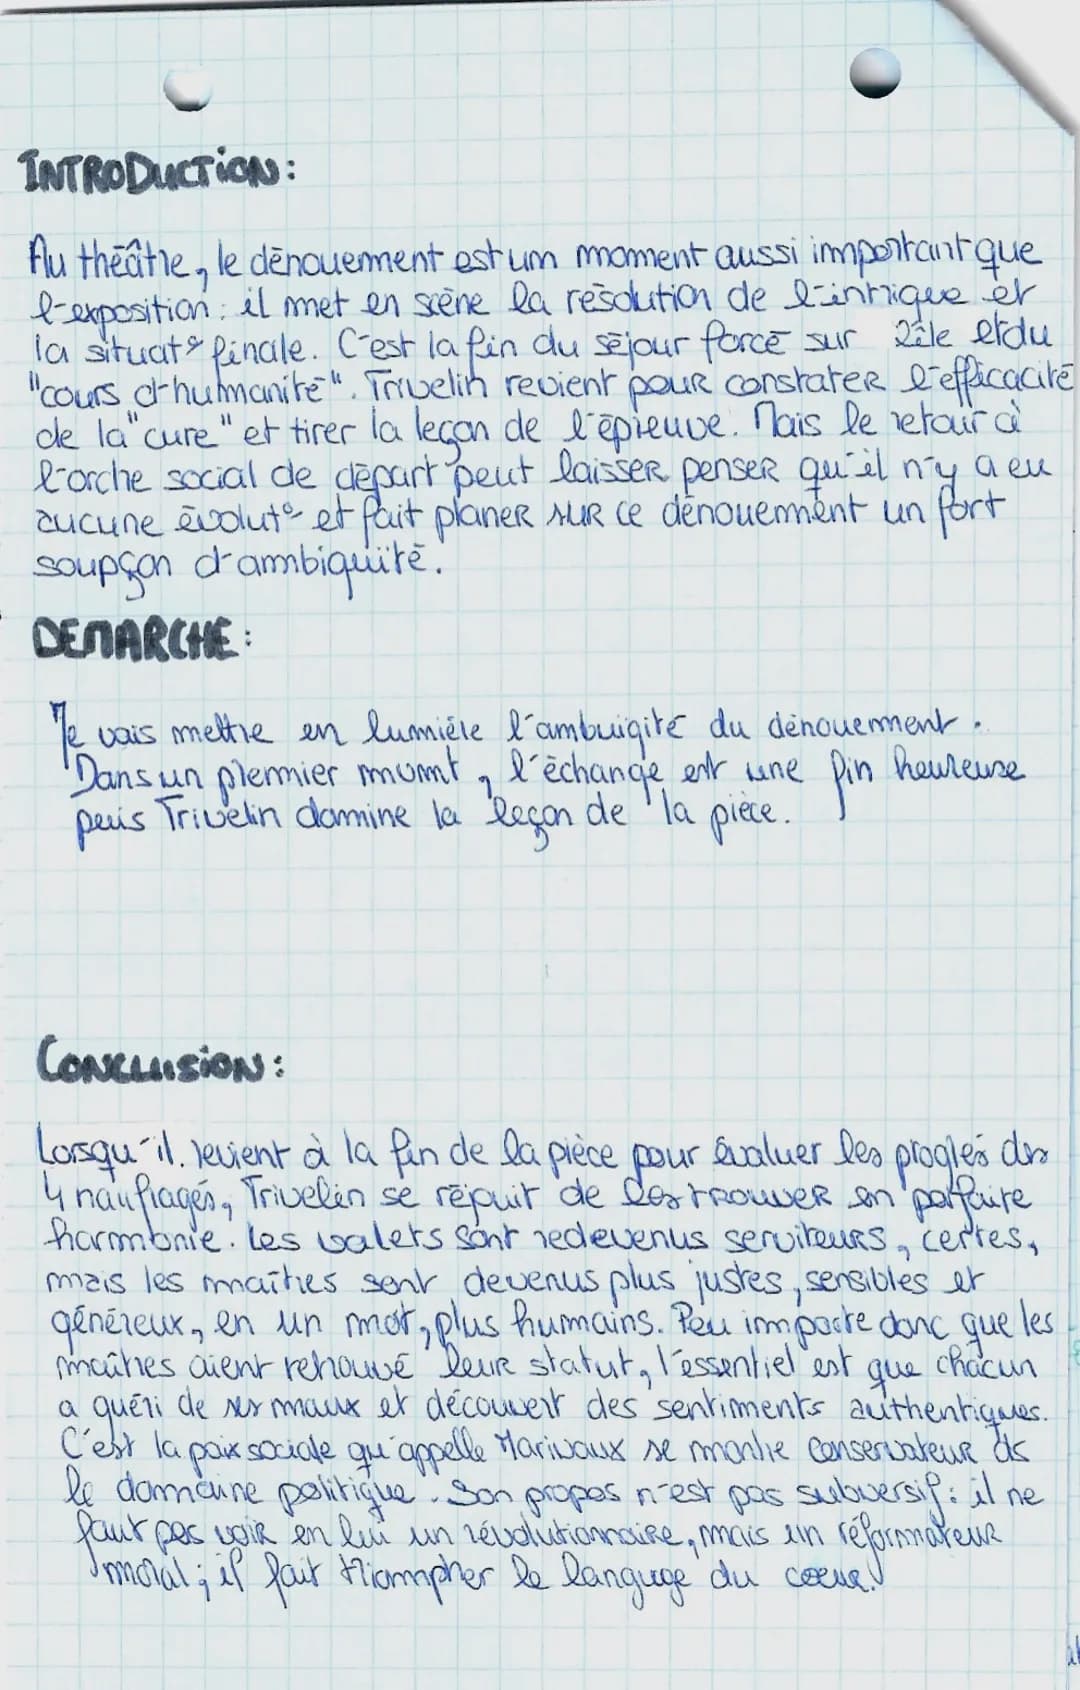 INTRODUCTION:
Au théâtre, le dénouement est un moment aussi important que
l'exposition: il met en scène la résolution de l'intrigue et
la situat° finale. C'est la fin du séjour forcé sur l'île et du
"cours d'humanité". Trivelin revient pour constater l'efficacité
de la "cure" et tirer la leçon de l'épreuve. Mais le retour à
l'orche social de départ peut laisser penser qu'il n'y a eu
aucune évolut° et fait planer sur ce dénouement un fort
soupçon d'ambiguïté.
DEMARCHE:
Je vais mettre en lumière l'ambuigité du dénouement.
Dans un premier momnt, l'échange est une fin heureuse
puis Trivelin domine la leçon de la pièce.
CONCLUISION:
Lorsqu'il revient à la fin de la pièce pour évaluer les progrés des
4 naufragés, Trivelin se réjouit de les trouver en parfaite
harmonie. Les valets sont redevenus serviteurs, certes,
mais les maîtres sont devenus plus justes, sensibles et
généreux, en un mot, plus humains. Peu importe donc que les
maîtres aient retrouvé leur statut, l'essentiel est que chacun
a guéri de ses maux et découvert des sentiments authentiques.
C'est la paix sociale qu'appelle Marivaux se montre conservateur ds
le domaine politique. Son propos n'est pas subversif: il ne
faut pas voir en lui un révolutionnaire, mais un réformateur
moral; il fait triompher le langage du coeur.